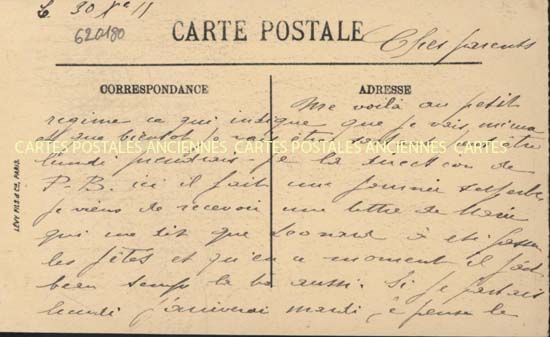 L. 30 Xe 11
620180
CARTE POSTALE
Chers parents
CORRESPONDANCE
ADRESSE
LÉVY FILS & CIE, PARIS.
CARTES POSTALES ANCIENNES CARTES POSTALES ANCIENNES CARTES
Me voilà au petit
régime ce qui indique que je vais mieux
et que bientôt je vais être
lundi je la direction de
P. B. ici il fait une journée superbe
je viens de recevoir une lettre de
qui me dit que Leonard a été passer
les fêtes et qu'en ce moment il fait
beau temps là bas aussi. Si je partais
lundi j'arriverai mardi, je pense le